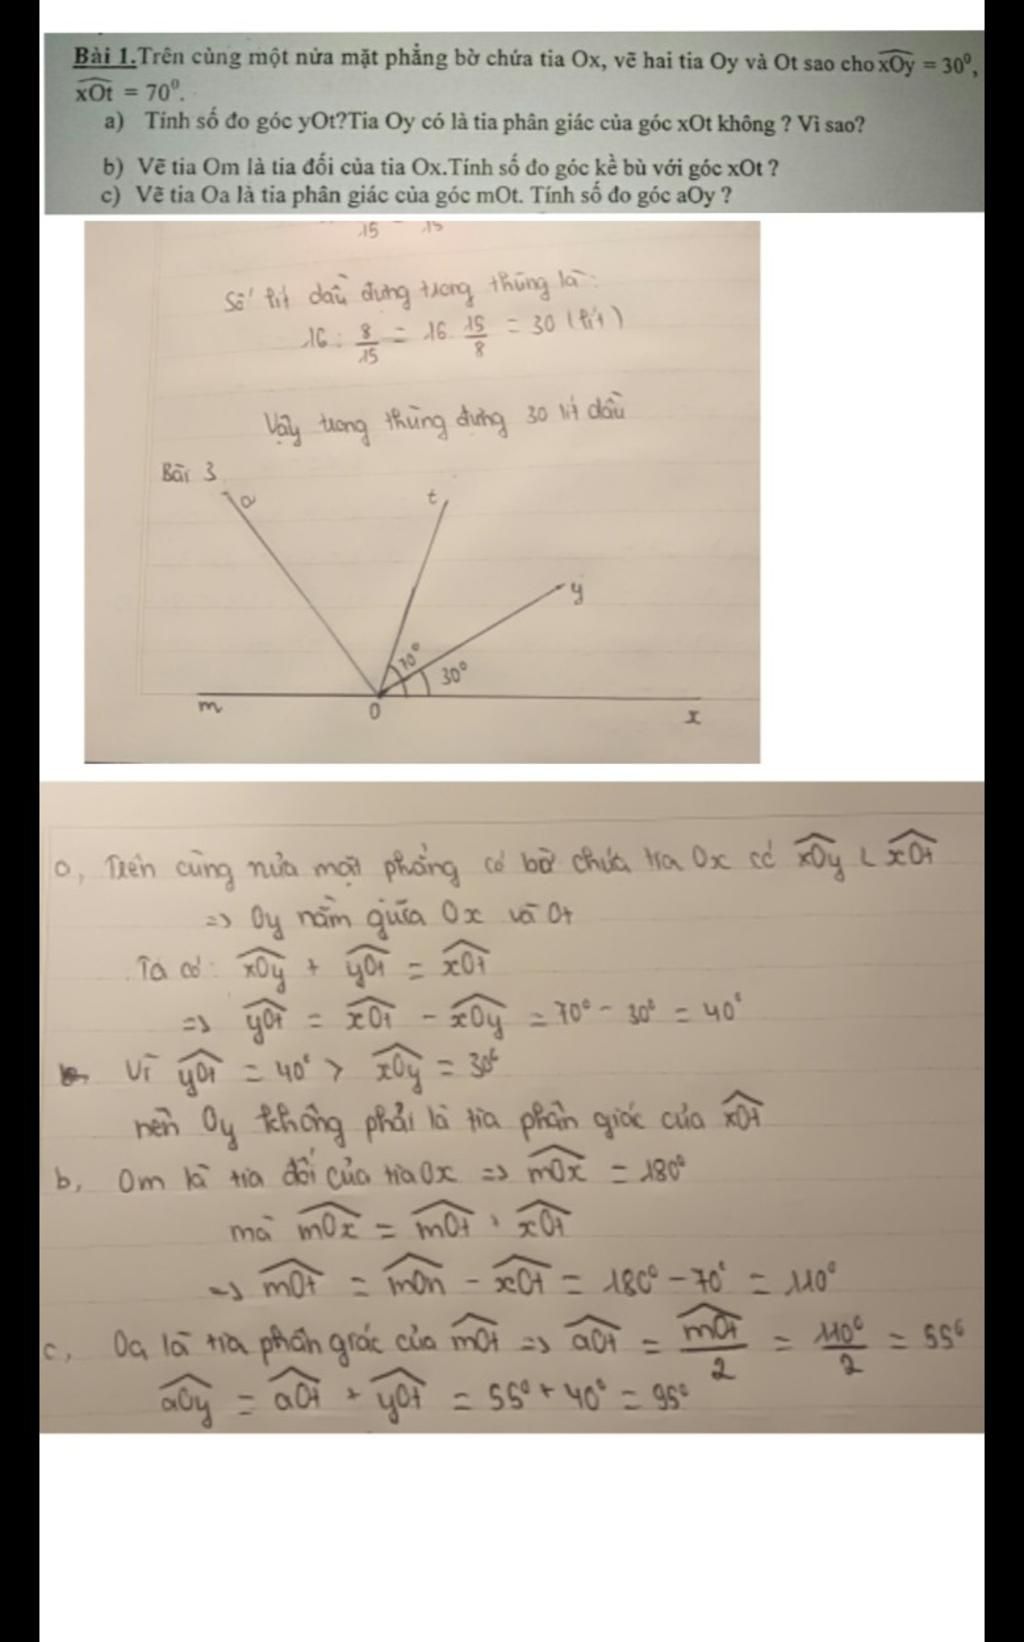 Bài 1.Trên cùng một nửa mặt phẳng bờ chứa tia Ox, vẽ hai tia Oy và Ot sao cho xOy = 30⁰,
xOt = 70⁰.
a) Tính số đo góc yOt?Tia Oy có là tia phân giác của góc xOt không ? Vì sao?
b) Vẽ tia Om là tia đối của tia Ox.Tính số đo góc kề bù với góc xOt ?
c) Vẽ tia Oa là tia phân giác của góc mOt. Tính số đo góc aOy ?
15 15
Số lít dầu đựng trong thùng là:
16 : 8/15 = 16 . 15/8 = 30 (lít)
Vậy trong thùng đựng 30 lít dầu
Bài 3
a t
y
70⁰
30⁰
m O x
a, Trên cùng nửa mặt phẳng có bờ chứa tia Ox có xOy < xOt
=> Oy nằm giữa Ox và Ot
Ta có: xOy + yOt = xOt
=> yOt = xOt - xOy = 70⁰ - 30⁰ = 40⁰
Vì yOt = 40⁰ > xOy = 30⁰
nên Oy không phải là tia phân giác của xOt
b, Om là tia đối của tia Ox => mOx = 180⁰
mà mOx = mOt + xOt
=> mOt = mOn - xOt = 180⁰ - 70⁰ = 110⁰
c, Oa là tia phân giác của mOt => aOt = mOt/2 = 110⁰/2 = 55⁰
aOy = aOt + yOt = 55⁰ + 40⁰ = 95⁰